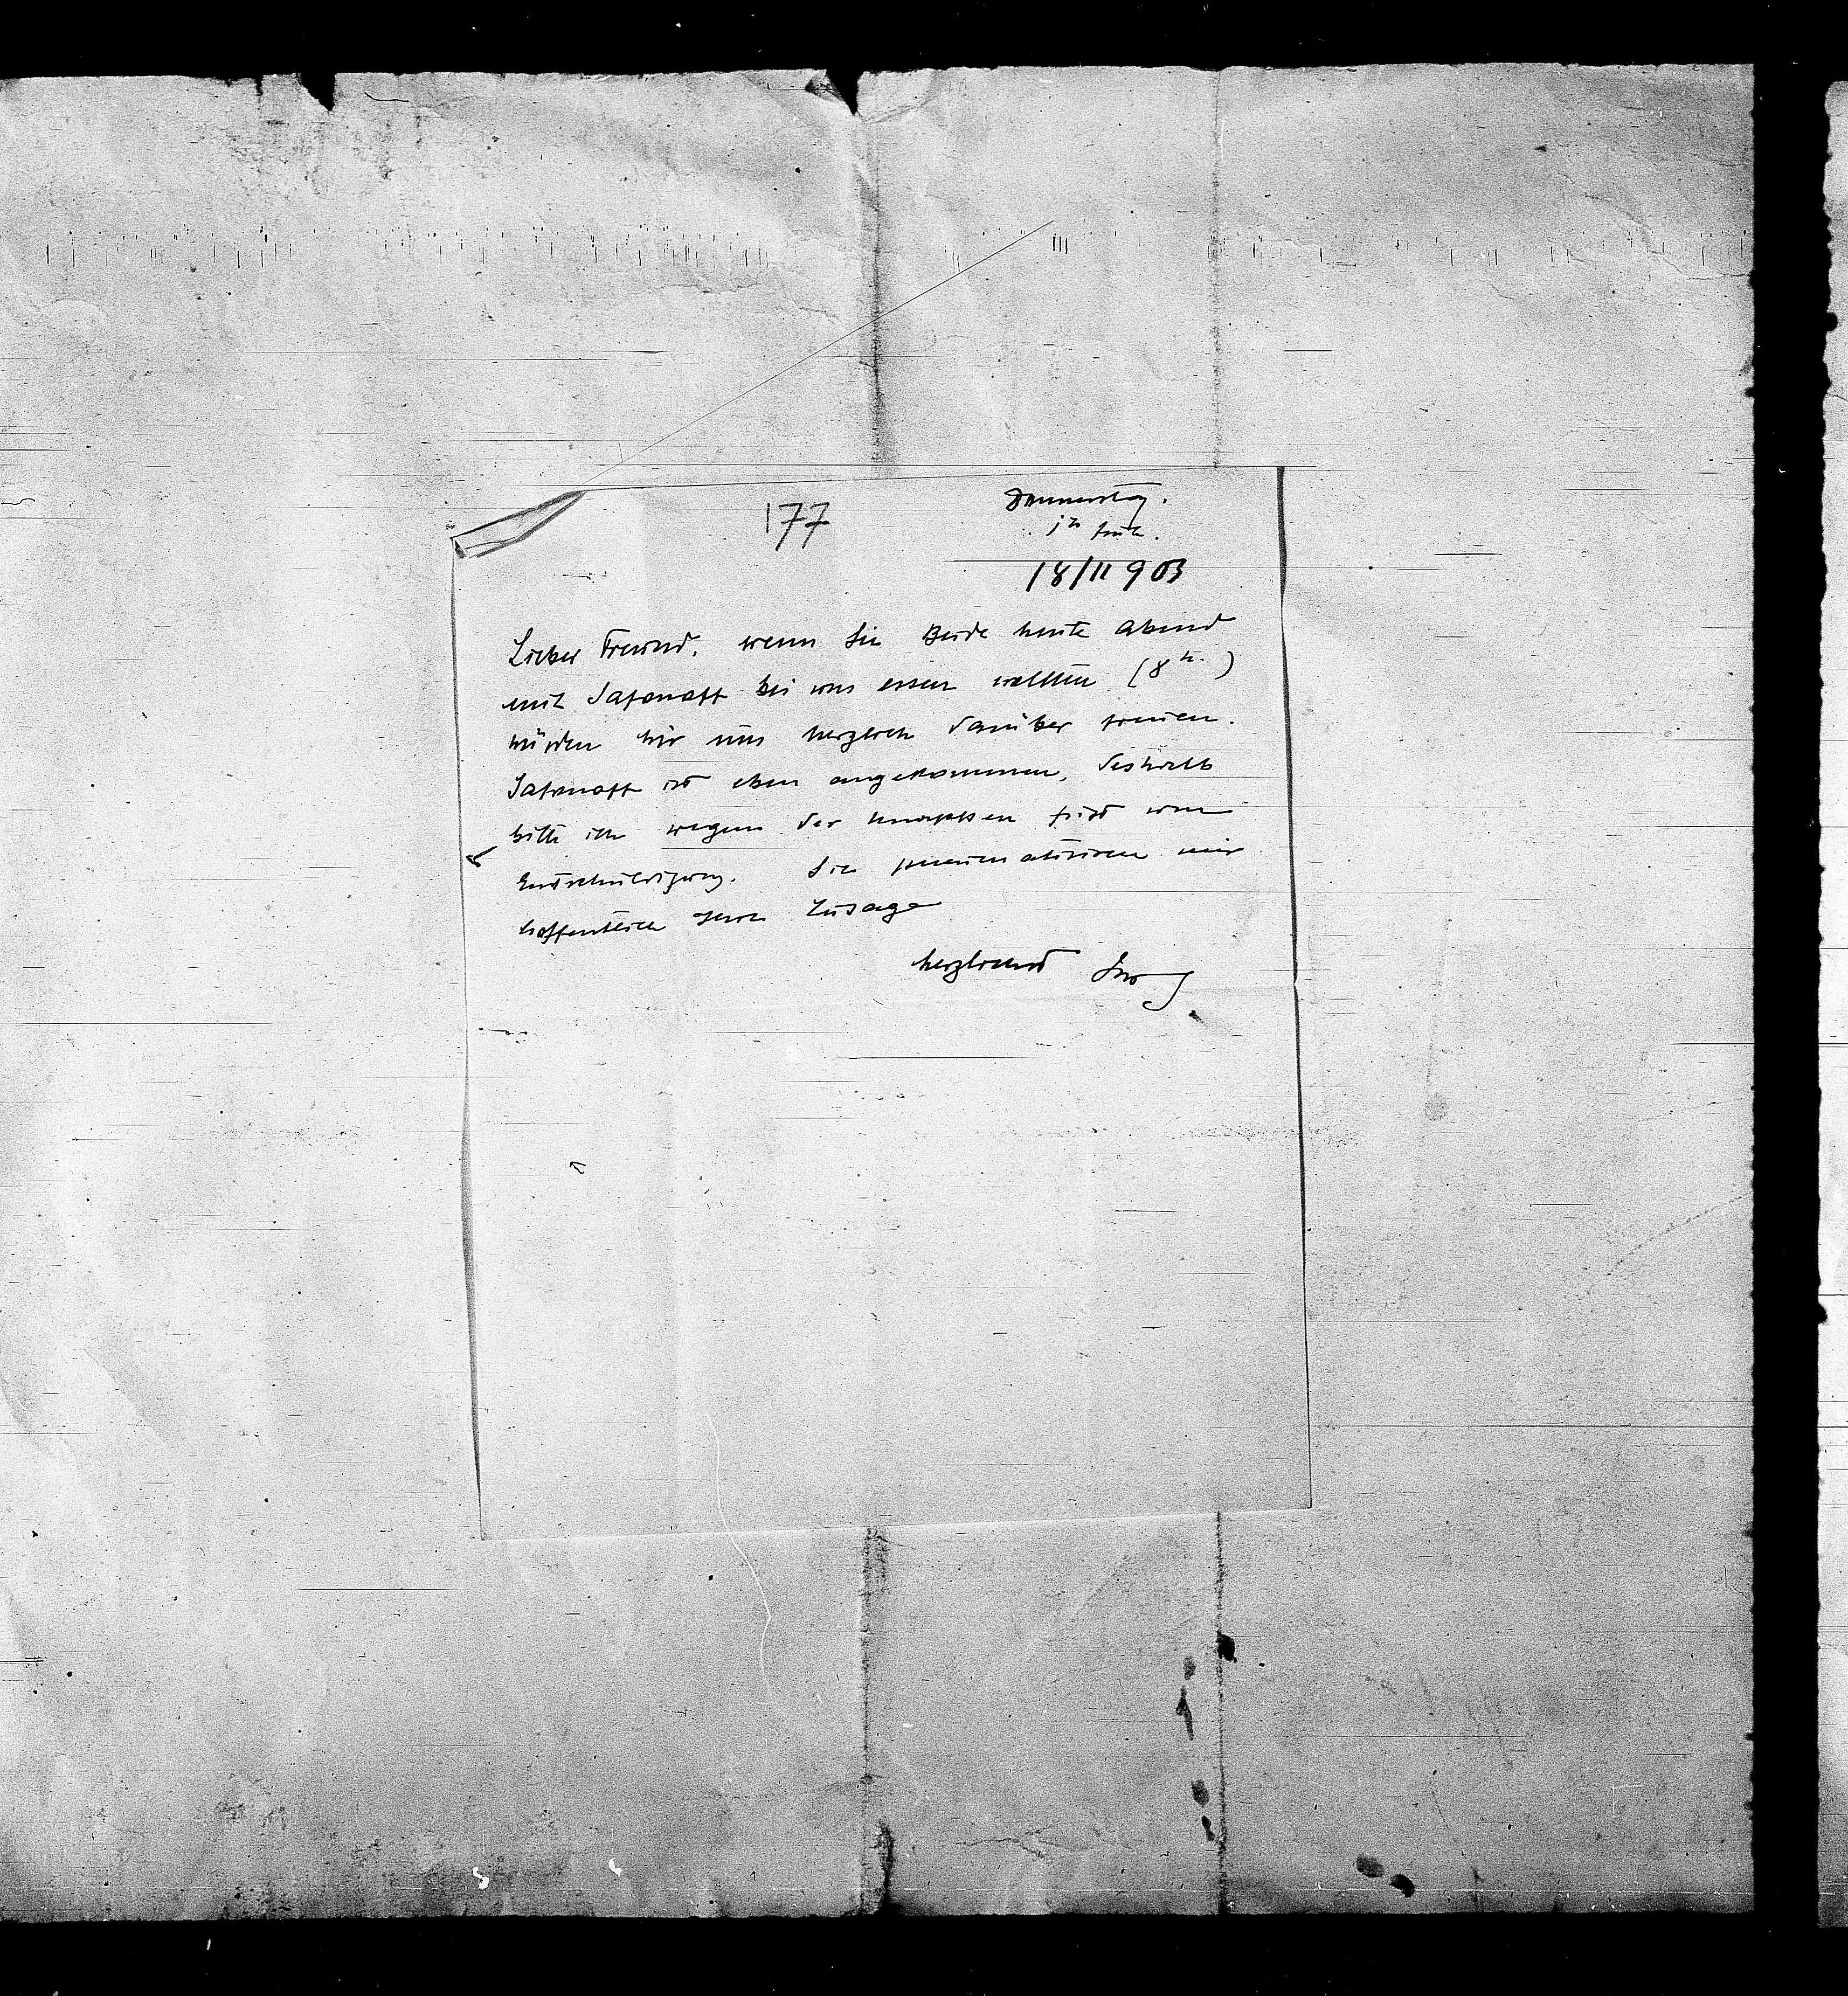 177
Donnerstag.
früh.
18/11 903
Lieber Freund. wenn Sie Beide heute Abend
mit Safonoff bei uns essen wollten (8 h.)
würden wir uns herzlich darüber freuen.
Safonoff ist eben angekommen, deshalb
bitte ich wegen der knappen Frist um
Entschuldigung. Sie pneumatisiren mir
hoffentlich Ihre Zusage
herzlichst